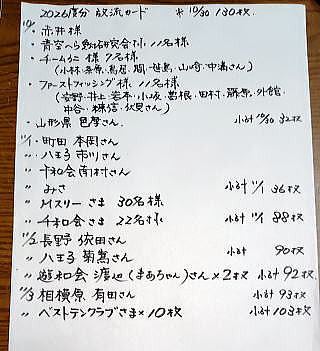 2026度分 放流カード ※10/30 130枚
10/30・赤井様
・青空へら鮒研究会様 11名様
・チームうに様 7名様
(小林・桑原・鳥居・関・福島・山崎・中満さん)
・ファーストフィッシング様 11名様
(安野・井上・岩本・小坂・葛根・田村・藤原・外館・
中谷・糠信・伏見さん)
・山形県 色摩さん 小計 10/30 32枚
11/1・町田 本岡さん
〃 八王子 市川さん
〃 千和会 南村さん
〃 みさ 小計 11/1 36枚
〃 Mスリーさま 30名様
〃 千和会さま 22名様 小計 11/1 88枚
11/2 長野 依田さん
〃 八王子 菊嶌さん 小計 90枚
〃 遊和会 渡辺(まあちゃん)さん×2枚 小計 92枚
11/3 相模原 有田さん 小計 93枚
〃 ベストテンクラブさま×10枚 小計 103枚